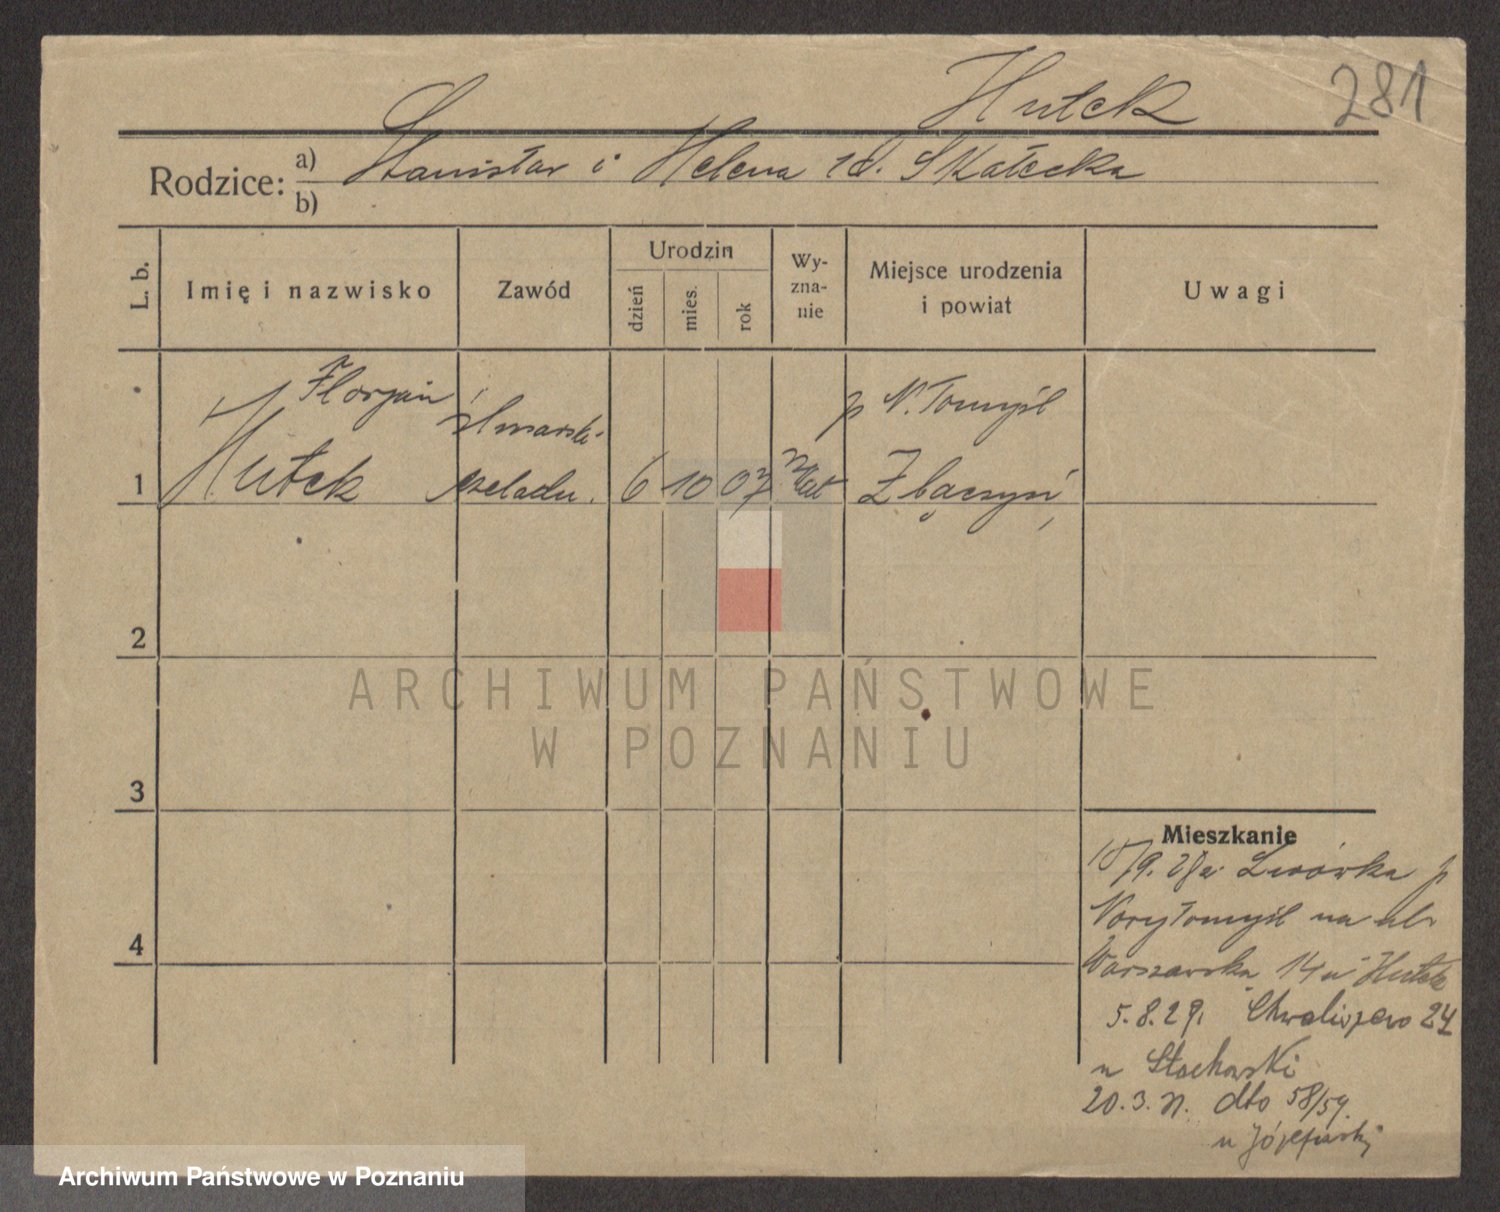 281
Hutek
Rodzice: a) Stanisław i Helena zd. Skałecka
b)
L. b.
Imię i nazwisko
Zawód
Urodzin
dzień
mies.
rok
Wy-
zna-
nie
Miejsce urodzenia
i powiat
Uwagi
Florjan
ślusarski
p N. Tomyśl
1 Hutek czeladn. 6 10 07 kat Zbąszyń
2
ARCHIWUM PAŃSTWOWE
W POZNANIU
3
4
Mieszkanie
15/9. 28 z Lwówka p
Nowytomyśl na ul.
Warszawska 14 u Hutek
5.8.29. Chwaliszewo 24
u Stachowski
20.3. dto 58/59.
u
Archiwum Państwowe w Poznaniu